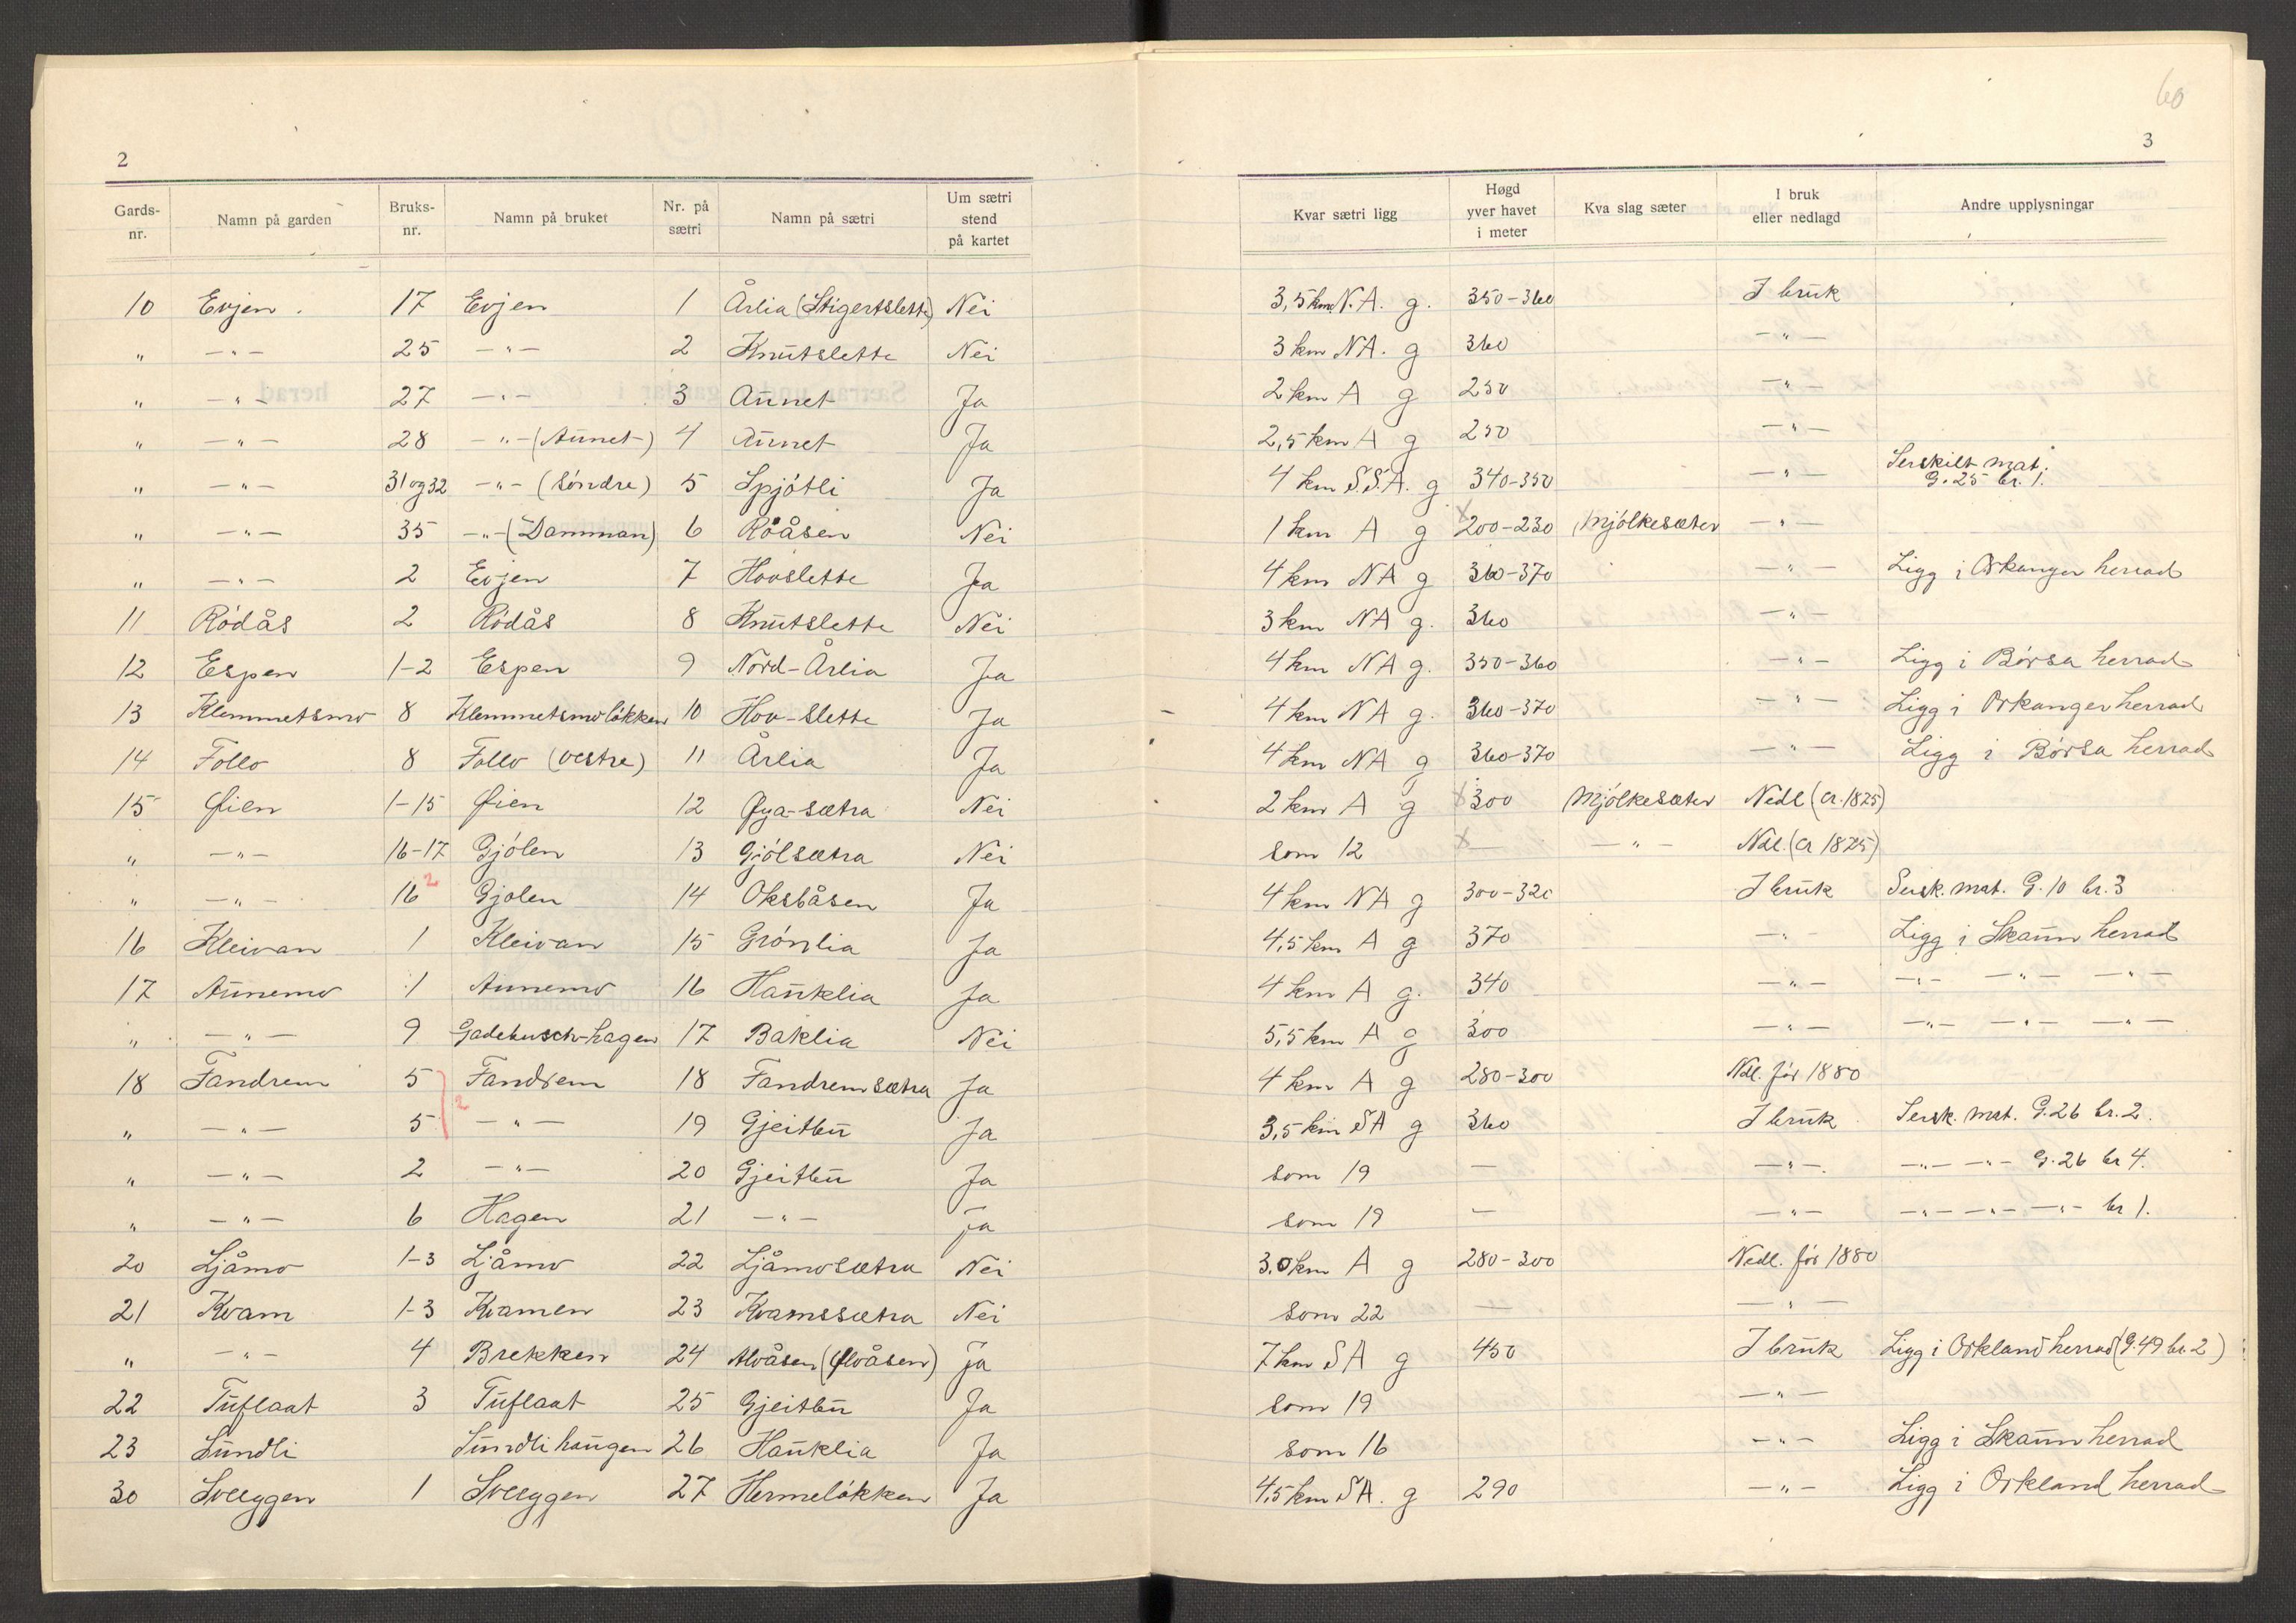 60
2
3
Gards-nr. Namn på garden Bruks-nr. Namn på bruket Nr. på sætri Namn på sætri Um sætri stend på kartet Kvar sætri ligg Høgd yver havet i meter Kva slag sæter I bruk eller nedlagd Andre upplysningar
10 Evjen 17 Evjen 1 Årlia (Stigertslette) Nei 3,5 km N.A. g. 350-360 I bruk
„ -„- 25 -„- 2 Knutslette Nei 3 km NA. g 360 -„-
„ -„- 27 -„- 3 Aunet Ja 2 km A g 250 -„-
„ -„- 28 -„- (Aunet) 4 Aunet Ja 2,5 km A g 250 -„-
„ -„- 31 og 32 -„- (Söndre) 5 Spjótli Ja 4 km S.S.A. g 340-350 -„- Serskilt mat. G. 25 br. 1.
„ -„- 35 -„- (Damman) 6 Røåsen Nei 1 km A g x 200-230 Mjólkesæter -„-
„ -„- 2 Evjen 7 Hovslette Ja 4 km NA g 360-370 -„- Ligg i Orkanger herrad
11 Ródås 2 Ródås 8 Knutslette Nei 3 km NA g. 360 -„-
12 Espen 1-2 Espen 9 Nord-Årlia Ja 4 km NA g. 350-360 -„- Ligg i Börsa herrad
13 Klemmetsmo 8 Klemmetsmolökken 10 Hov-slette Ja 4 km NA g. 360-370 -„- Ligg i Orkanger herrad
14 Follo 8 Follo (vestre) 11 Årlia Ja 4 km NA g 360-370 -„- Ligg i Börsa herrad
15 Øien 1-15 Øien 12 Øya-sætra Nei 2 km A g x 300 Mjólkesæter Nedl (cr. 1825)
„ -„- 16-17 Gjólen 13 Gjólsætra Nei som 12 x — -„- Ndl. (cr 1825)
„ -„- 16 2 Gjolen 14 Oksbåsen Ja 4 km NA g 300-320 I bruk Sersk. mat. G. 10 br. 3
16 Kleivan 1 Kleivan 15 Grónlia Ja 4,5 km A g 370 -„- Ligg i Skaun herrad
17 Aunemo 1 Aunemo 16 Hauklia Ja 4 km A g. 340 -„- -„- -„- -„-
„ -„- 9 Gadebusch-hagen 17 Baklia Nei 5,5 km A g 300 -„- -„- -„- -„-
18 Fandrem 5 Fandrem 18 Fandremsætra Ja 4 km A g 280-300 Ndl. för 1880
„ -„- 5 2 -„- 19 Gjeitbu Ja 3,5 km SA g 360 I bruk Sersk. mat. G. 26 br. 2.
„ -„- 2 -„- 20 Gjeitbu Ja som 19 — -„- -„- -„- G. 26 br 4.
„ -„- 6 Hagen 21 -„- Ja som 19 — -„- -„- -„- -„- br 1.
20 Ljåmo 1-3 Ljåmo 22 Ljåmosætra Nei 3.0 km A g 280-300 Nedl. för 1880
21 Kvam 1-3 Kvamen 23 Kvamssætra Nei som 22 — -„-
„ -„- 4 Brekken 24 Alvåsen (Ølvåsen) Ja 7 km SA g 450 I bruk Ligg i Orkland herrad (G. 49 br. 2)
22 Tuflaat 3 Tuflaat 25 Gjeitbu Ja som 19 -„-
23 Sundli Sundlihaugen 26 Hauklia Ja som 16 -„- Ligg i Skaun herrad
30 Sveggen 1 Sveggen 27 Hermelökken Ja 4,5 km SA. g 290 -„- Ligg i Orkland herrad